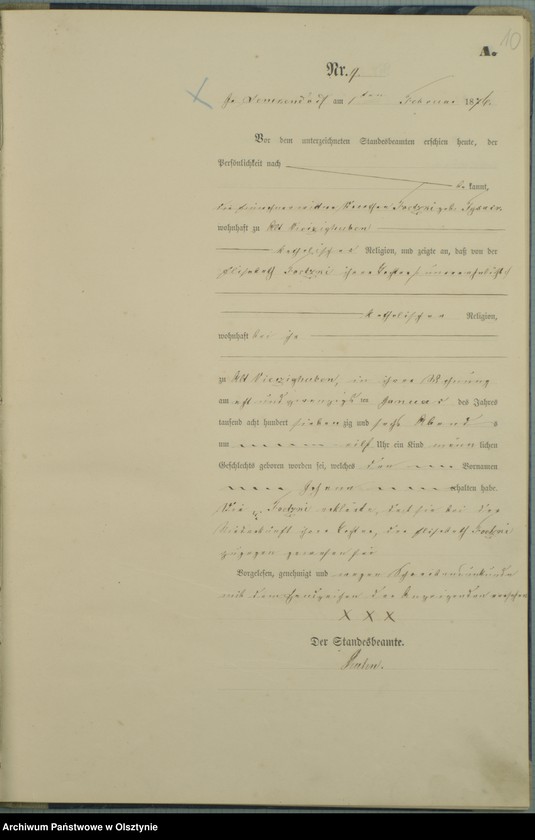 10
A.
Nr. 9.
am 1ten Februar 1876.
Vor dem unterzeichneten Standesbeamten erschien heute, der
Persönlichkeit nach
be kannt,
die Wittwe Dorothea geb.
wohnhaft zu Alt Vierzighuben
katholischer Religion, und zeigte an, daß von der
Elisabeth ihrer Tochter, unverehelicht
katholischen Religion,
wohnhaft bei ihr
zu Alt Vierzighuben, in ihrer Wohnung
am acht und zwanzigsten Januar des Jahres
tausend acht hundert sieben zig und sechs Abends
um eilf Uhr ein Kind männ lichen
Geschlechts geboren worden sei, welches den Vornamen
Johann erhalten habe.
Die erklärte, daß sie bei der
Niederkunft ihrer Tochter, der Elisabeth
zugegen gewesen sei
Vorgelesen, genehmigt und wegen Schreibensunkunde
mit dem Handzeichen der Anzeigenden versehen
X X X
Der Standesbeamte.
Archiwum Państwowe w Olsztynie